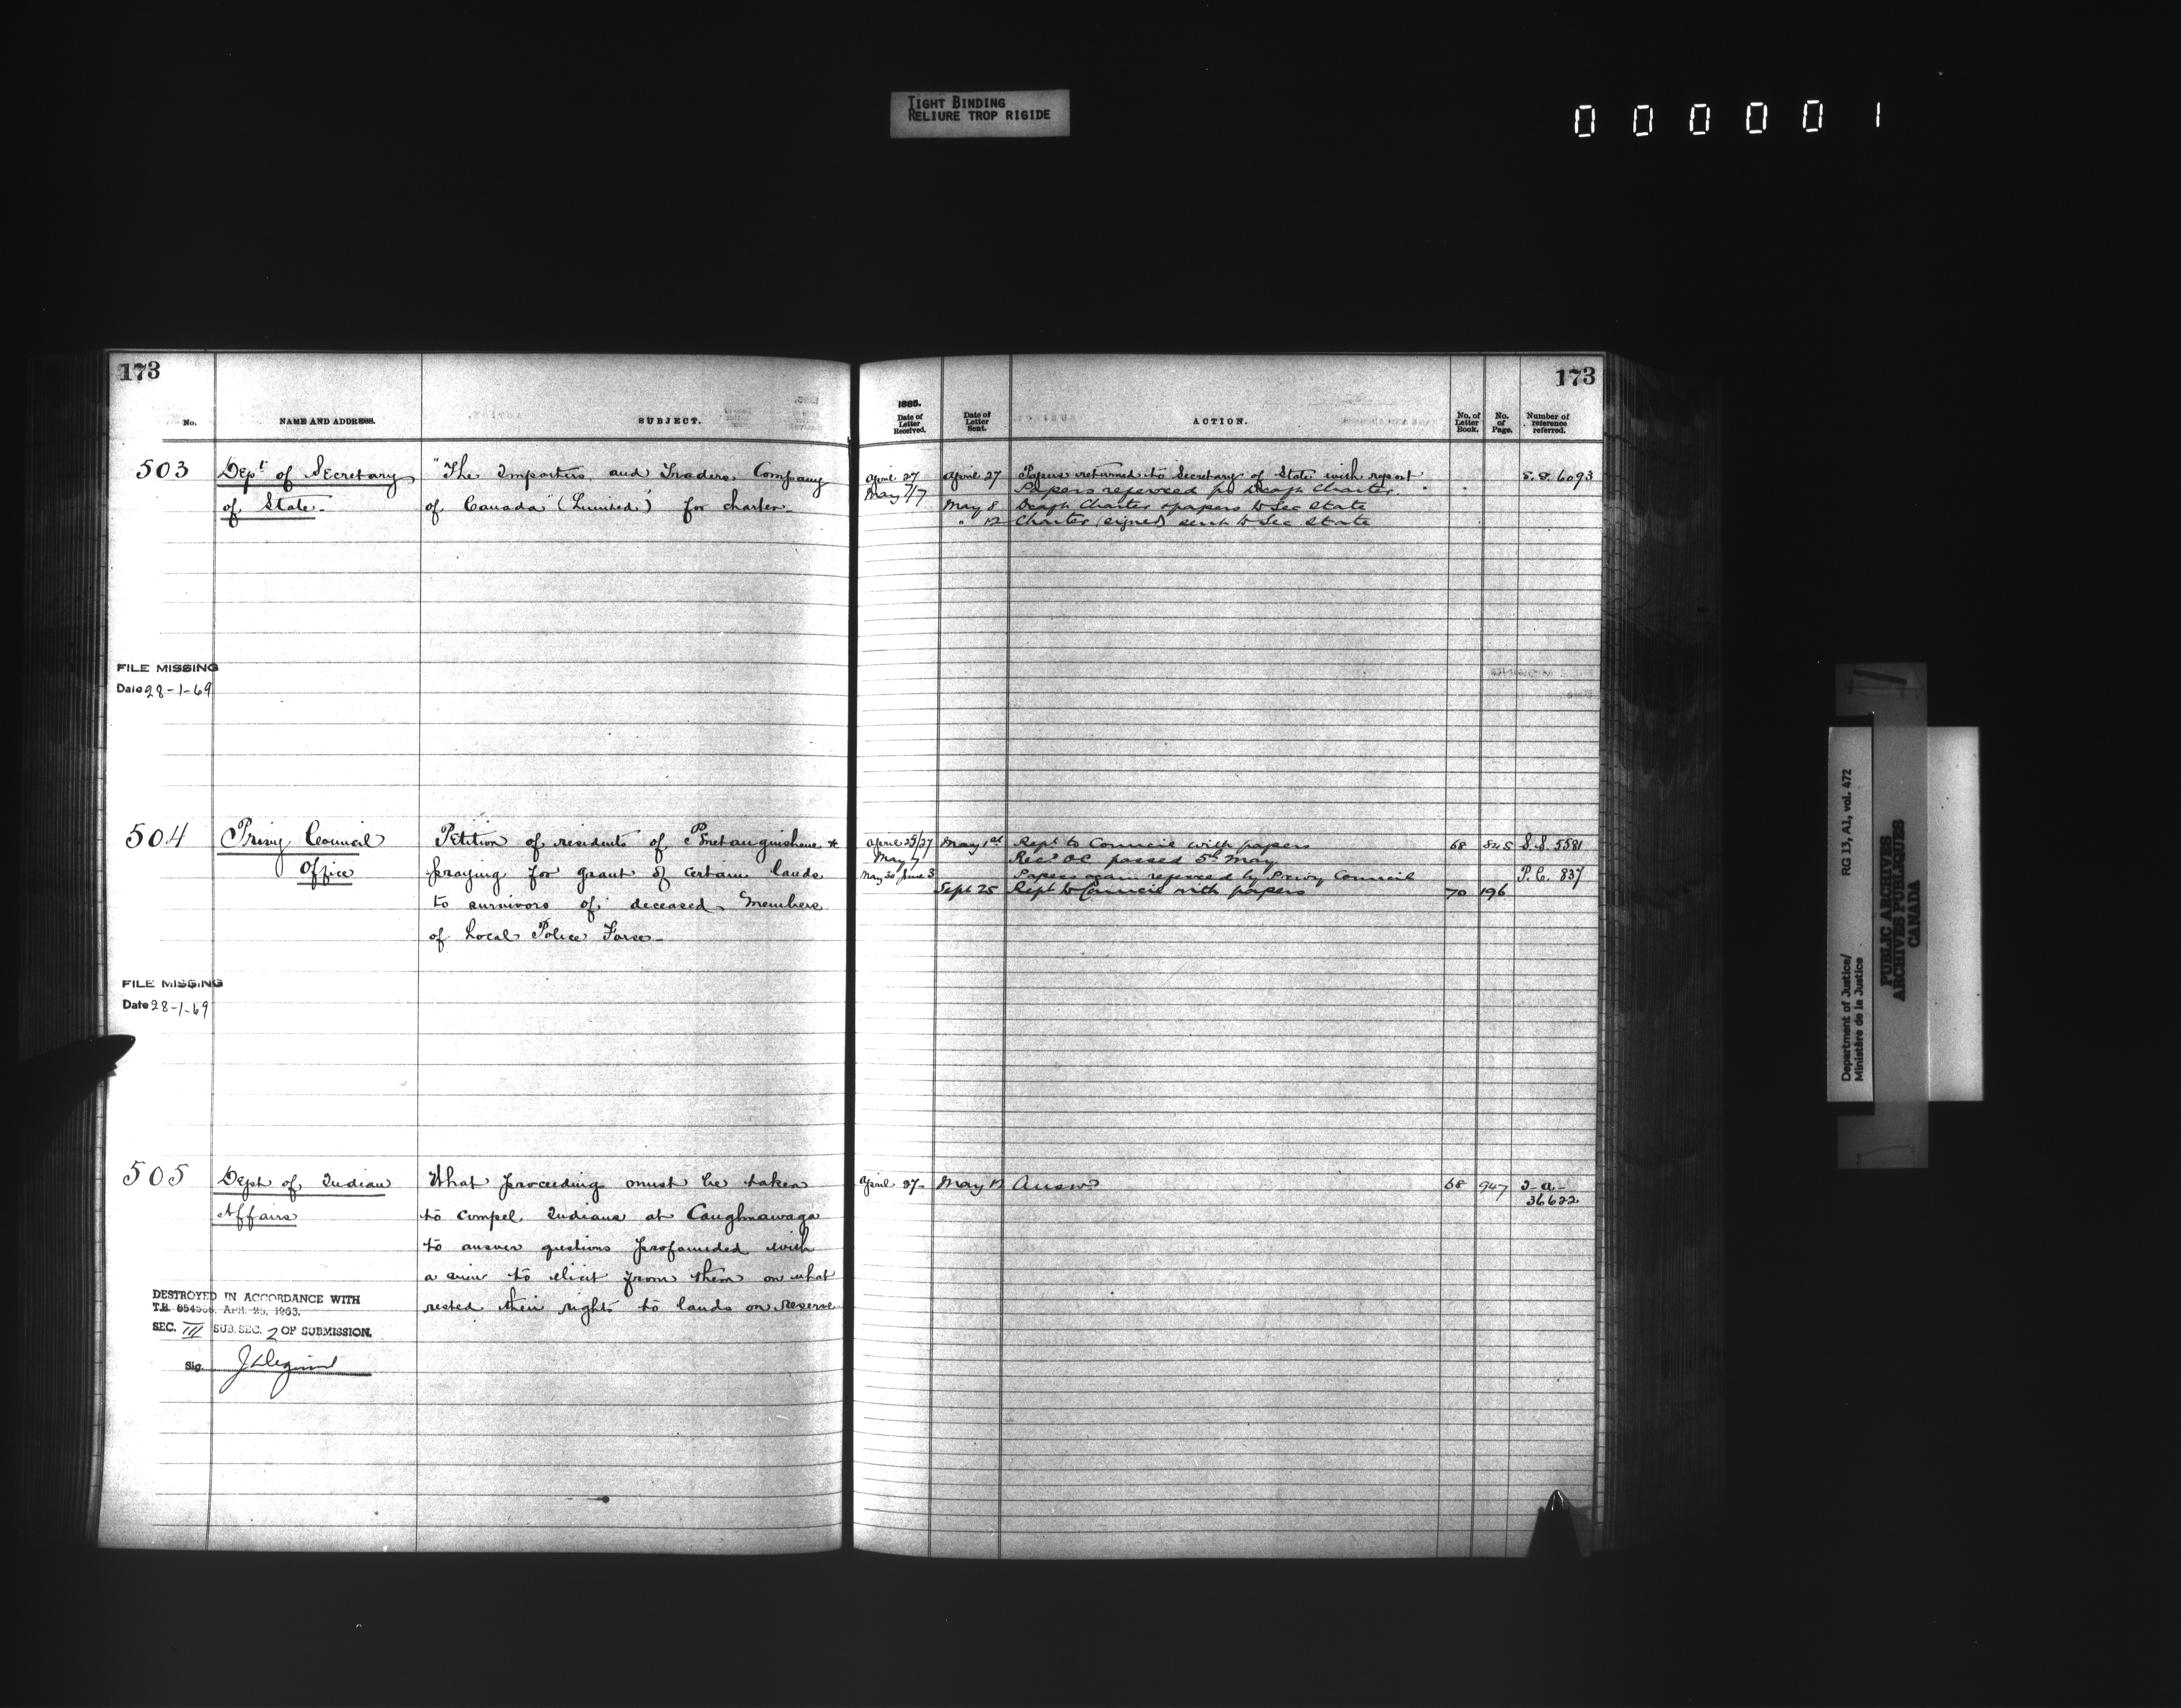 TIGHT BINDING
RELIURE TROP RIGIDE
000001
173
No.
NAME AND ADDRESS.
SUBJECT.
503
Dept of Secretary
of State.
"The Importers and Traders Company
of Canada (Limited)" for charter.
FILE MISSING
Date 28-1-69
504
Privy Council
Office
Petition of residents of Penetanguishene &
praying for grant of certain lands
to survivors of deceased Members
of Local Police Force.
FILE MISSING
Date 28-1-69
505
Dept of Indian
Affairs
What proceeding must be taken
to compel Indians at Caughnawaga
to answer questions propounded with
a view to elicit from them on what
rested their rights to lands on Reserve
DESTROYED IN ACCORDANCE WITH
T.B. APR. 25, 1963.
SEC. III SUB. SEC. 2 OF SUBMISSION.
Sig.
173
1885.
Date of
Letter
Received.
Date of
Letter
Sent.
ACTION.
No. of
Letter
Book.
No.
of
Page.
Number of
reference
referred.
April 27 April 27 Papers returned to Secretary of State with report S.S. 6093
May 7/7 Papers referred for Draft Charter.
May 8 Draft Charter & papers to Sec State
" 12 Charter (signed) sent to Sec State
April 25/27 May 1st Rept. to Council with papers 68 845 S.S. 5581
May 7 Recd OC passed 5th May
May 30 June 3 Papers again referred by Privy Council P.C. 837
Sept 25 Rept to Council with papers 70 196
April 27 May 12 Answd 68 947 I.A.
36622
Department of Justice/
Ministère de la Justice
RG 13, A1, vol. 472
PUBLIC ARCHIVES
ARCHIVES PUBLIQUES
CANADA